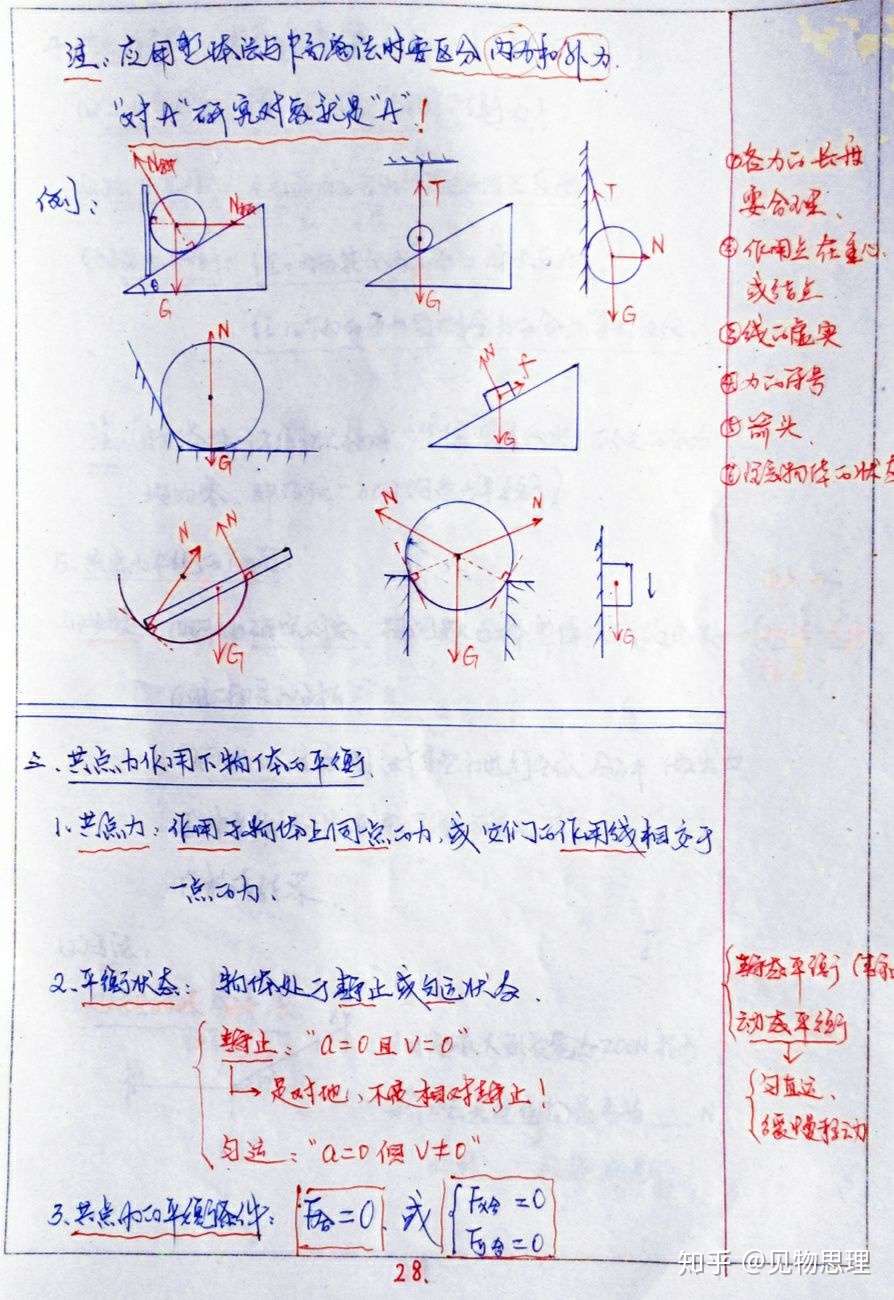 注：应用整体法与隔离法时要区分内力和外力.
"对A"研究对象就是"A"！
例：
N
N
θ
G
T
G
T
N
G
N
G
N
f
G
N
N
G
N
N
G
G
①各力的长度
要合理、
②作用点在重心
或结点
③线的虚实
④力的符号
⑤箭头、
三、共点力作用下物体的平衡.
1、共点力：作用于物体上同一点的力,或它们的作用线相交于
一点的力.
2、平衡状态：物体处于静止或匀速状态.
静止："a=0且V=0"
是对地、不是相对静止！
匀速："a=0但V≠0"
静态平衡
动态平衡
匀直运、
缓慢移动
3、共点力的平衡条件：F合=0、或 Fx合=0
Fy合=0
28.
知乎 @见物思理